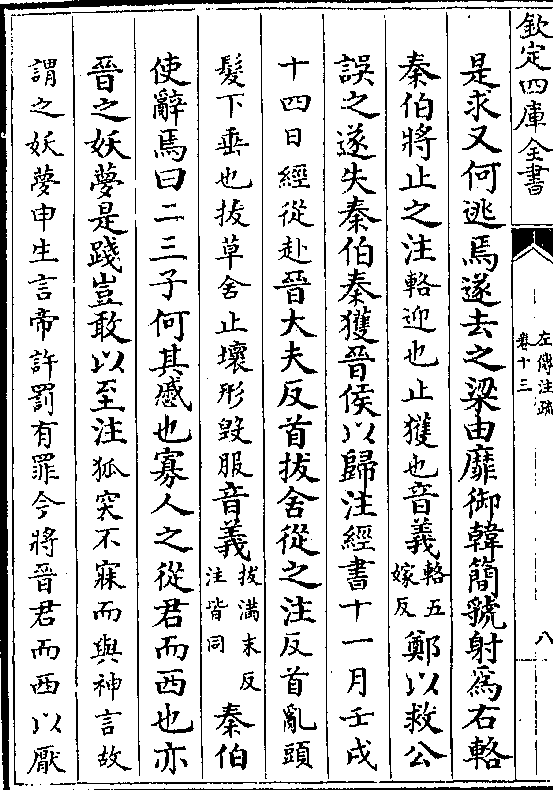 欽定四庫全書
左傳注疏
卷十三
八
是求又何逃焉遂去之梁由靡御韓簡虢射為右輅
秦伯將止之注輅迎也止獲也音義輅五
嫁反
鄭以救公
誤之遂失秦伯秦獲晉侯以歸注經書十一月壬戌
十四日經從赴晉大夫反首拔舍從之注反首亂頭
髮下垂也拔草舍止壞形毀服音義拔滿末反
注皆同
秦伯
使辭焉曰二三子何其慼也寡人之從君而西也亦
晉之妖夢是踐豈敢以至注狐突不寐而與神言故
謂之妖夢申生言帝許罰有罪今將晉君而西以厭